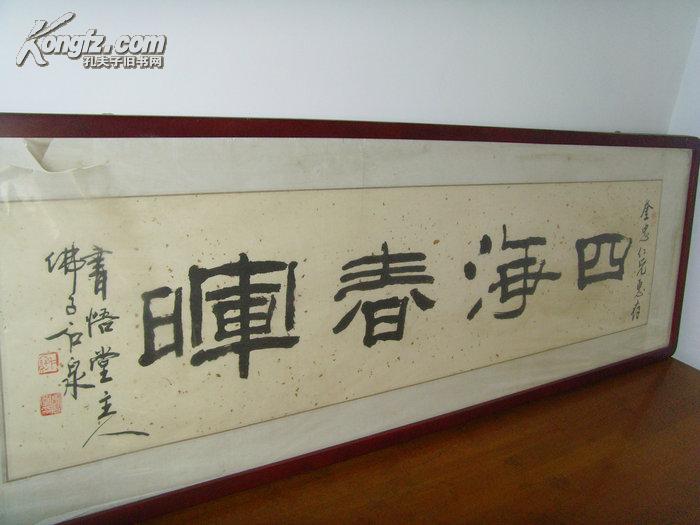 Kongfz.com
孔夫子旧书网
奎忠仁兄惠存
四海春暉
書悟堂主人
佛子石泉